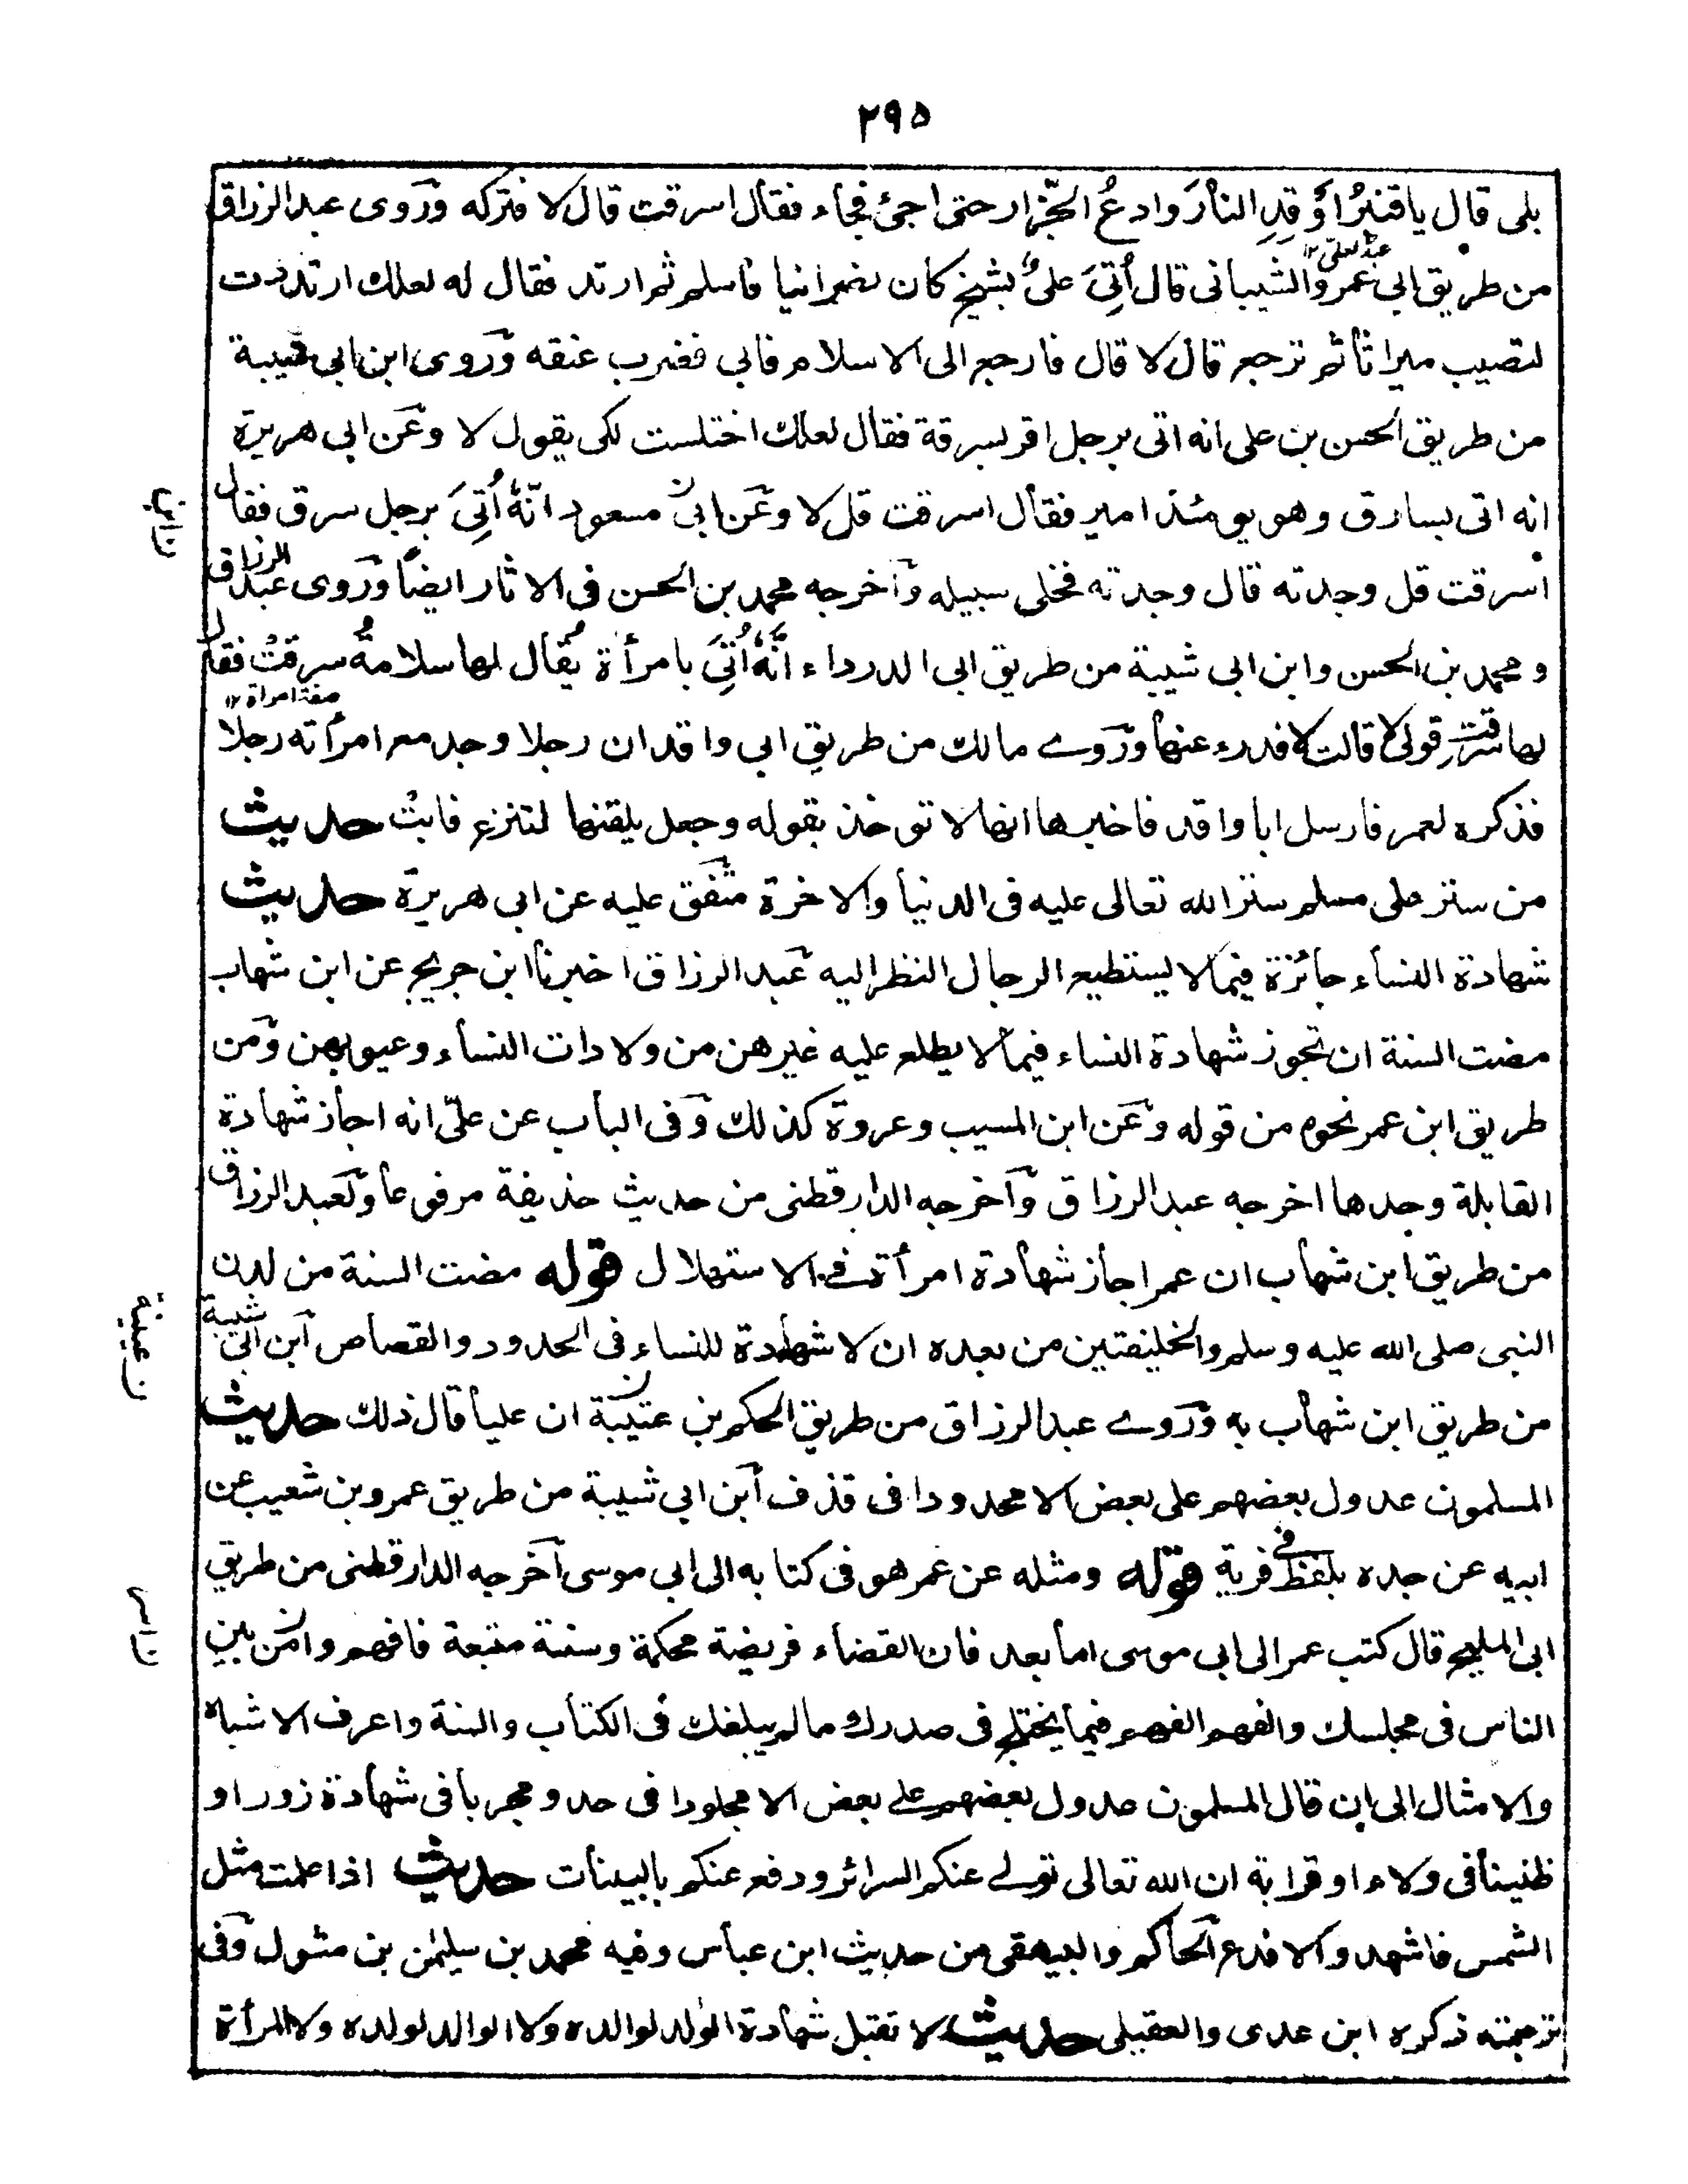 ٢٩٥
بلى قال يا قنبرُ اَوْقِدِ النارَ وادعُ الجَزّار حتى اجئ فجاء فقال اسرقت قال لا فتركه وروى عبد الرزاق
من طريق ابي عمرو الشيباني قال أُتِيَ عليٌ بشيخ كان نصرانيا فاسلم ثم ارتد فقال له لعلك ارتددت
لتصيب ميراثا ثم ترجع قال لا قال فارجع الى الاسلام فابى فضرب عنقه وروى ابن ابي شيبة
من طريق الحسن بن على انه اتى برجل اقر بسرقة فقال لعلك اختلست لكى يقول لا وعن ابي هريرة
انه اتى بسارق وهو يومئذ امير فقال اسرقت قل لا وعن ابي مسعود انّهُ أُتِيَ برجل سرق فقال
اسرقت قل وجدته قال وجدته فخلى سبيله واخرجه محمد بن الحسن فى الاثار ايضاً وروى عبد الرزاق
و محمد بن الحسن وابن ابي شيبة من طريق ابي الدرداء انّهُ أُتِيَ بامرأة يُقال لها سلامةُ سرقتْ فقال
صفة امراة ١٢
لها سرقتِ قولى لا قالت لا فدرء عنها وروے مالك من طريق ابي واقد ان رجلا وجد مع امرأته رجلا
فذكره لعمر فارسل ابا واقد فاخبرها انها لا تؤخذ بقوله وجعل يلقنها لتنزع فابتْ حديث
من ستر على مسلم ستر الله تعالى عليه فى الدنيا والاخرة متفق عليه عن ابي هريرة حديث
شهادة النساء جائزة فيما لا يستطيع الرجال النظر اليه عبد الرزاق اخبرنا ابن جريج عن ابن شهاب
مضت السنة ان تجوز شهادة النساء فيما لا يطلع عليه غيرهن من ولادات النساء وعيوبهن ومن
طريق ابن عمر نحوه من قوله وعن ابن المسيب وعروة كذلك وفى الباب عن علىّ انه اجاز شهادة
القابلة وحدها اخرجه عبد الرزاق واخرجه الدارقطنى من حديث حذيفة مرفوعا ولعبد الرزاق
من طريق ابن شهاب ان عمر اجاز شهادة امرأة فے الاستهلال قوله مضت السنة من لدن
النبى صلى الله عليه وسلم والخليفتين من بعده ان لا شهادة للنساء فى الحدود والقصاص ابن ابي شيبة
من طريق ابن شهاب به وروے عبد الرزاق من طريق الحكم بن عتيبة ان عليا قال ذلك حديث
المسلمون عدول بعضهم على بعض الا محدودا فى قذف ابن ابي شيبة من طريق عمرو بن شعيب عن
ابيه عن جده بلفظ فى فرية قوله ومثله عن عمر هو فى كتابه الى ابي موسى اخرجه الدارقطنى من طريق
ابى المليح قال كتب عمر الى ابي موسى اما بعد فان القضاء فريضة محكمة وسنة متبعة فافهم وامن بين
الناس فى مجلسك والفهم الفهم فيما يختلج فى صدرك مما لم يبلغك فى الكتاب والسنة واعرف الاشباه
والامثال الى ان قال المسلمون عدول بعضهم علے بعض الا مجلودا فى حد و مجربا فى شهادة زور او
ظنينا فى ولاء او قرابة ان الله تعالى تولے عنكم السرائر ودفع عنكم بالبينات حديث اذا علمت مثل
الشمس فاشهد والا فدع الحاكم والبيهقى من حديث ابن عباس وفيه محمد بن سليمن بن مشول وفى
ترجمته ذكره ابن عدى والعقيلى حديث لا تقبل شهادة الولد لوالده ولا الوالد لولده ولا المرأة
ن ابن
ن عيينة
ن اس